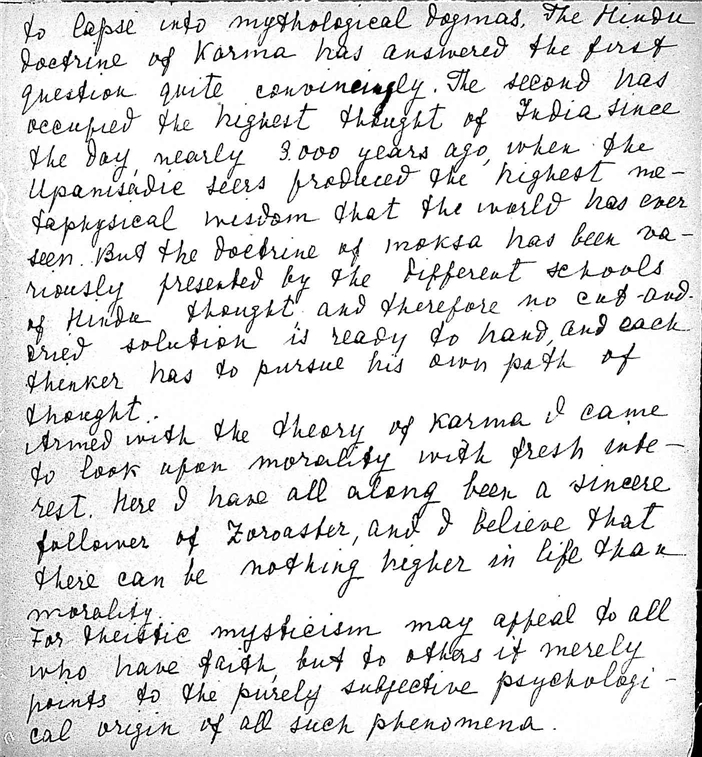 to lapse into mythological dogmas. The Hindu
doctrine of Karma has answered the first
question quite convincingly. The second has
occupied the highest thought of India since
the day, nearly 3.000 years ago, when the
Upanisadic seers produced the highest me-
taphysical wisdom that the world has ever
seen. But the doctrine of moksa has been va-
riously presented by the different schools
of Hindu thought and therefore no cut-and-
dried solution is ready to hand, and each
thinker has to pursue his own path of
thought..
Armed with the theory of Karma I came
to look upon morality with fresh inte-
rest. Here I have all along been a sincere
follower of Zoroaster, and I believe that
there can be nothing higher in life than
morality.
For theistic mysticism may appeal to all
who have faith, but to others it merely
points to the purely subjective psychologi-
cal origin of all such phenomena.